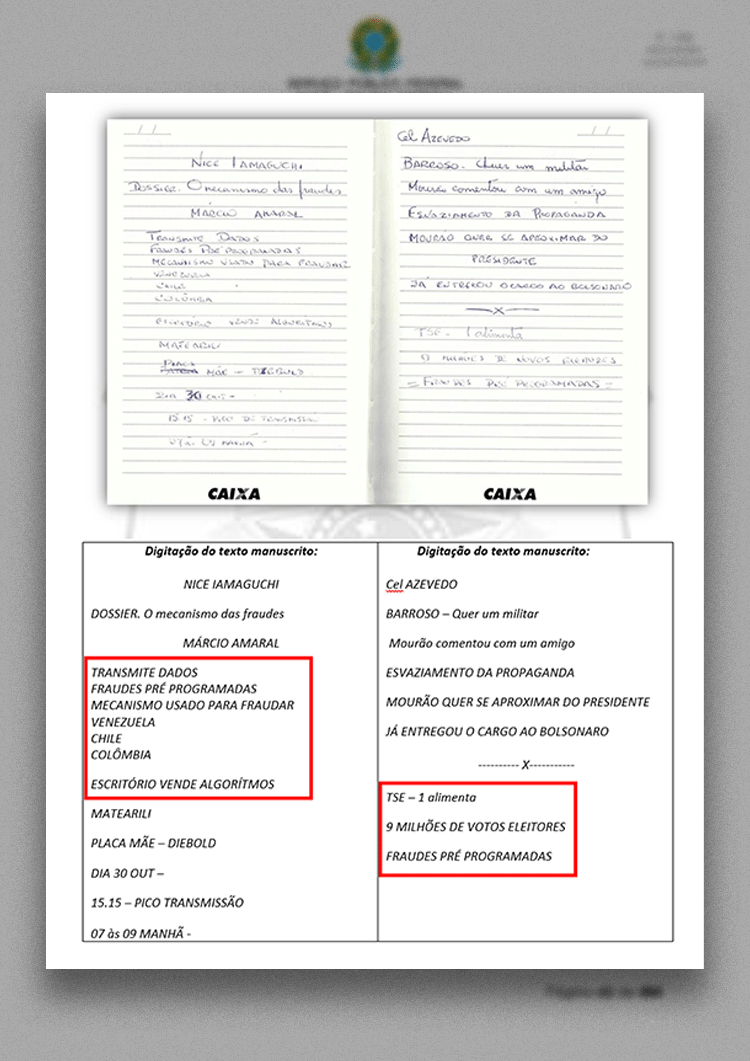 SERVIÇO PÚBLICO FEDERAL
NICE IAMAGUCHI
DOSSIER. O mecanismo das fraudes
MÁRCIO AMARAL
TRANSMITE DADOS
FRAUDES PRÉ PROGRAMADAS
MECANISMO USADO PARA FRAUDAR
VENEZUELA
CHILE
COLÔMBIA
ESCRITÓRIO VENDE ALGORITMOS
MATEARILI
PLACA MÃE - DIEBOLD
DIA 30 OUT -
15:15 - PICO DE TRANSMISSÃO
07 às 09 MANHÃ -
CAIXA
Cel AZEVEDO
BARROSO. Quer um militar
Mourão comentou com um amigo
ESVAZIAMENTO DA PROPAGANDA
MOURÃO QUER SE APROXIMAR DO
PRESIDENTE
JÁ ENTREGOU O CARGO AO BOLSONARO
X
TSE - 1 alimenta
9 MILHÕES DE NOVOS ELEITORES
= FRAUDES PRÉ PROGRAMADAS =
CAIXA
Digitação do texto manuscrito:
NICE IAMAGUCHI
DOSSIER. O mecanismo das fraudes
MÁRCIO AMARAL
TRANSMITE DADOS
FRAUDES PRÉ PROGRAMADAS
MECANISMO USADO PARA FRAUDAR
VENEZUELA
CHILE
COLÔMBIA
ESCRITÓRIO VENDE ALGORÍTMOS
MATEARILI
PLACA MÃE – DIEBOLD
DIA 30 OUT –
15.15 – PICO TRANSMISSÃO
07 às 09 MANHÃ -
Digitação do texto manuscrito:
Cel AZEVEDO
BARROSO – Quer um militar
Mourão comentou com um amigo
ESVAZIAMENTO DA PROPAGANDA
MOURÃO QUER SE APROXIMAR DO PRESIDENTE
JÁ ENTREGOU O CARGO AO BOLSONARO
---------- X-----------
TSE – 1 alimenta
9 MILHÕES DE VOTOS ELEITORES
FRAUDES PRÉ PROGRAMADAS